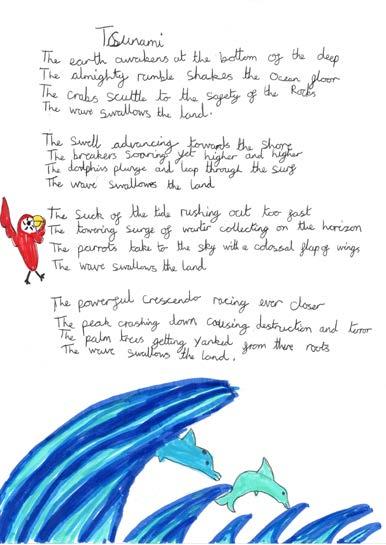 Tsunami
The earth awakens at the bottom of the deep
The almighty rumble shakes the Ocean floor
The crabs scuttle to the safety of the Rocks
The wave swallows the land.
The swell advancing towards the shore
The breakers soaring yet higher and higher
The dolphins plunge and leap through the surf
The wave swallows the land
The suck of the tide rushing out too fast
The towering surge of warter collecting on the horizon
The parrots take to the sky with a colossal flap of wings
The wave swallows the land
The powerful Crescendo racing ever closer
The peak crashing down causing destruction and teror
The palm trees getting Yanked from there roots
The wave swallows the land.